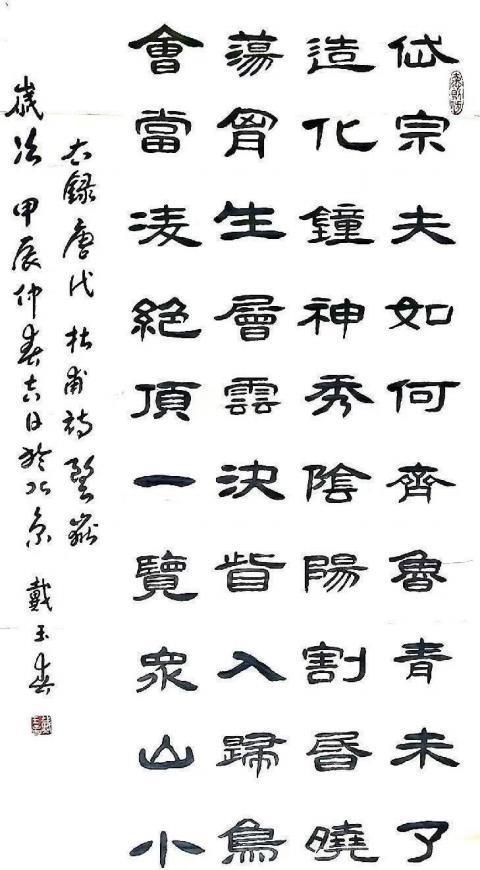 岱宗夫如何齊魯青未了
造化鐘神秀陰陽割昏曉
蕩胷生層雲決眥入歸鳥
會當凌絕頂一覽眾山小
右録唐代杜甫詩望嶽
歲次甲辰仲春吉日於北京 戴玉春